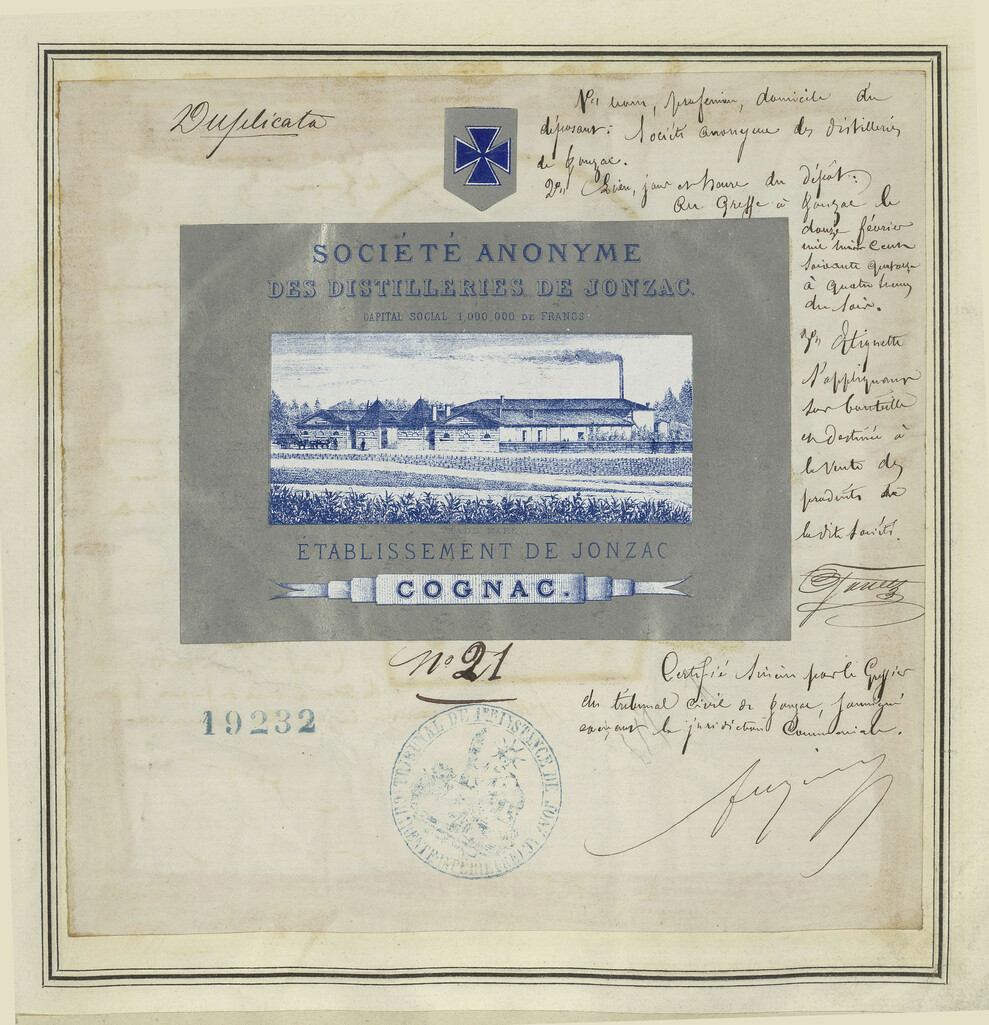 Duplicata
1° nom, profession, domicile du
déposant: Société anonyme des distilleries
de Jonzac.
2° Lieu, jour et heure du dépôt:
Au Greffe à Jonzac le
douze février
mil huit cent
soixante quatorze
à quatre heures
du soir.
3° Etiquette
s'appliquant
sur bouteille
et destinée à
la vente des
produits de
la dite Société.
SOCIÉTÉ ANONYME
DES DISTILLERIES DE JONZAC.
CAPITAL SOCIAL 1,000,000 DE FRANCS
TRADE MARK
ÉTABLISSEMENT DE JONZAC
COGNAC.
n° 21
19232
Certifié sincère par le Greffier
du tribunal civil de Jonzac, soussigné
exerçant la juridiction Commerciale.
TRIBUNAL DE 1re INSTANCE DE JONZAC